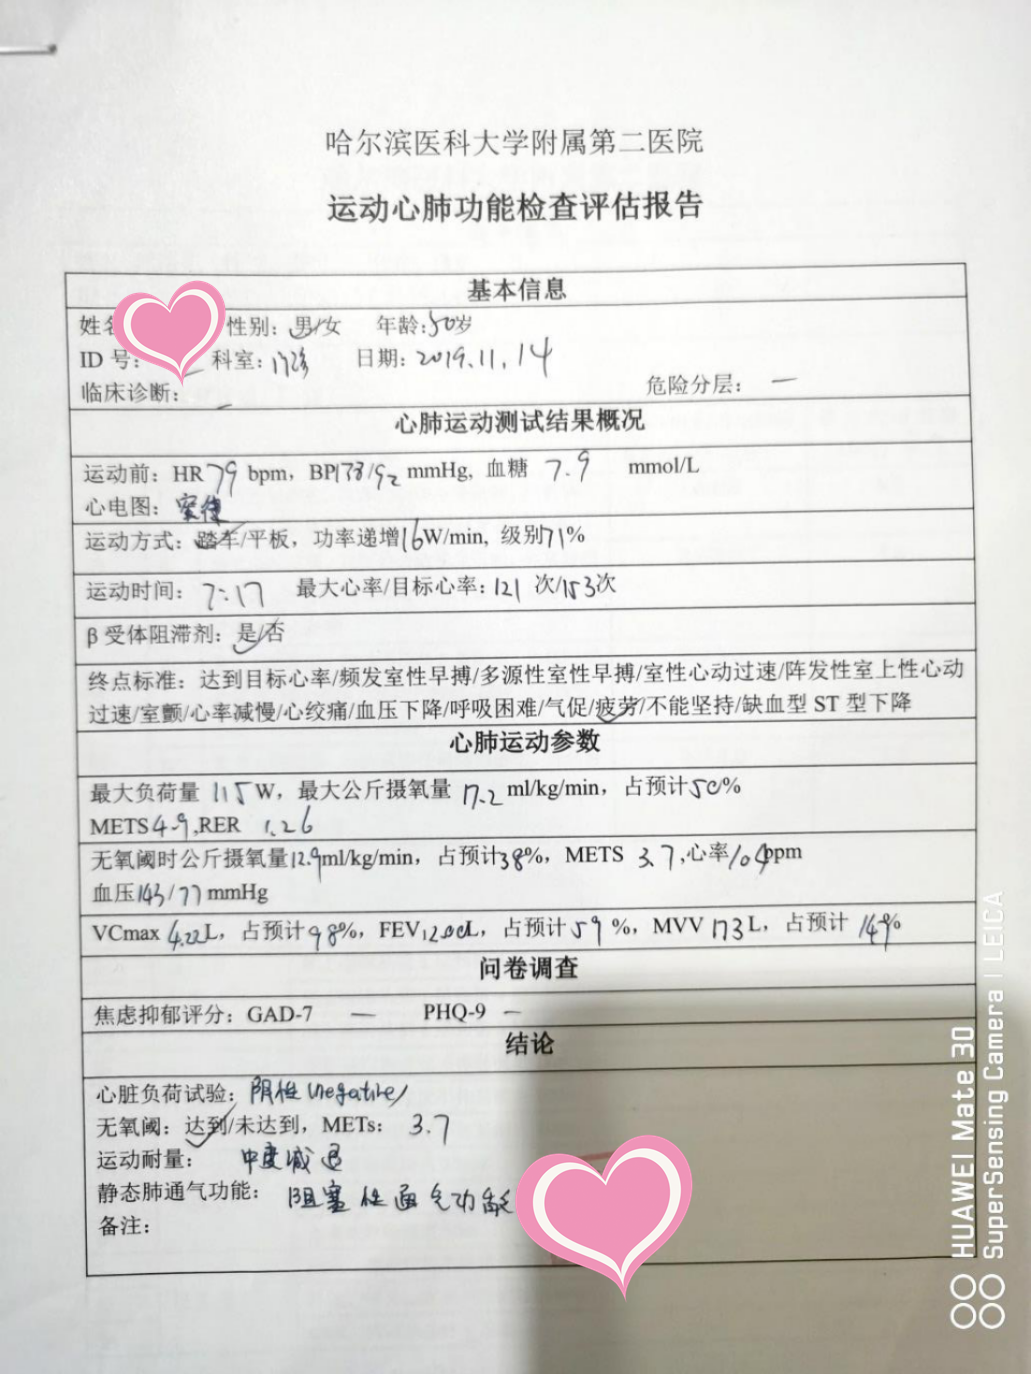 哈尔滨医科大学附属第二医院
运动心肺功能检查评估报告
基本信息
姓名 性别：男/女 年龄：50岁
ID 号： 科室：门诊 日期：2019.11.14
临床诊断： 危险分层：—
心肺运动测试结果概况
运动前：HR 79 bpm，BP 138/92 mmHg, 血糖 7.9 mmol/L
心电图：窦律
运动方式：踏车/平板，功率递增16W/min, 级别71%
运动时间：7:17 最大心率/目标心率：121 次/153次
β 受体阻滞剂：是/否
终点标准：达到目标心率/频发室性早搏/多源性室性早搏/室性心动过速/阵发性室上性心动
过速/室颤/心率减慢/心绞痛/血压下降/呼吸困难/气促/疲劳/不能坚持/缺血型 ST 型下降
心肺运动参数
最大负荷量 115 W，最大公斤摄氧量 17.2 ml/kg/min，占预计50%
METS 4.9,RER 1.26
无氧阈时公斤摄氧量12.9ml/kg/min，占预计38%，METS 3.7,心率104ppm
血压143/77 mmHg
VCmax 4.22L，占预计98%，FEV₁ L，占预计59 %，MVV 173 L，占预计 149%
问卷调查
焦虑抑郁评分：GAD-7 — PHQ-9 —
结论
心脏负荷试验：阴性（negative）
无氧阈：达到/未达到，METs： 3.7
运动耐量： 中度减退
静态肺通气功能： 阻塞性通气功能
备注：
HUAWEI Mate 30
SuperSensing Camera | LEICA